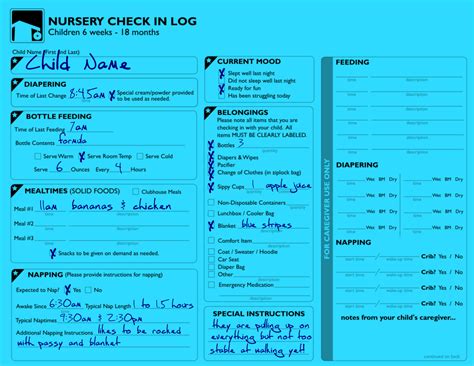 NURSERY CHECK IN LOG
Children 6 weeks - 18 months
Child Name (First and Last)
Child Name
DIAPERING
Time of Last Change 8:45am Special cream/powder provided
to be used as needed.
BOTTLE FEEDING
Time of Last Feeding 7am
Bottle Contents formula
Serve Warm Serve Room Temp Serve Cold
Serve 6 Ounces Every 4 Hours
MEALTIMES (SOLID FOODS) Clubhouse Meals
Meal #1 11am bananas & chicken
time description
Meal #2
time description
Meal #3
time description
Snacks to be given on demand as needed.
NAPPING (Please provide instructions for napping)
Expected to Nap? Yes No
Awake Since 6:30am Typical Nap Length 1 to 1.5 hours
Typical Naptimes 9:30am & 2:30pm
Additional Napping Instructions likes to be rocked
with passy and blanket
CURRENT MOOD
Slept well last night
Did not sleep well last night
Ready for fun
Has been struggling today
BELONGINGS
Please note all items that you are
checking in with your child. All
items MUST BE CLEARLY LABELED.
Bottles 3
Diapers & Wipes
Pacifier
Change of Clothes (in ziplock bag)
Sippy Cups 1 apple juice
Non-Disposable Containers
Lunchbox / Cooler Bag
Blanket blue stripes
description
Comfort Item
description
Coat / Sweater / Hoodie
Car Seat
Diaper Bag
Other
Emergency Medication
SPECIAL INSTRUCTIONS
they are pulling up on
everything but not too
stable at walking yet!
FOR CAREGIVER USE ONLY
FEEDING
time description
time description
time description
time description
DIAPERING
Wet BM Dry Wet BM Dry
time time
Wet BM Dry Wet BM Dry
time time
NAPPING
Crib? Yes / No
start time wake time
Crib? Yes / No
start time wake time
notes from your child's caregiver...
continued on back